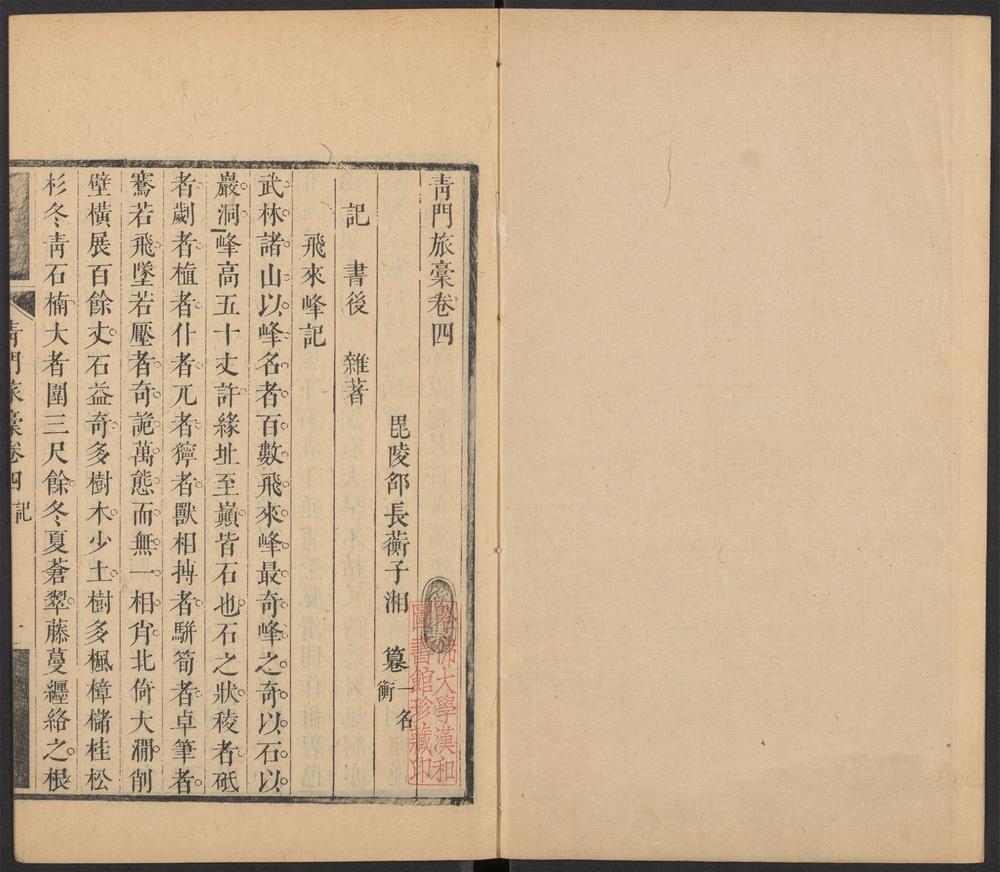 青門旅稾卷四
毘陵邵長蘅子湘 篹 一名衡
記 書後 雜著
飛來峰記
武林諸山以峰名者百數飛來峰最奇峰之奇以石以
巖洞峰高五十丈許緣址至巔皆石也石之狀稜者砥
者劌者植者什者兀者獰者獸相摶者騈筍者卓筆者
騫若飛墜若壓者奇詭萬態而無一相肖北倚大澗削
壁橫展百餘丈石益奇多樹木少土樹多楓樟儲桂松
杉冬靑石楠大者圍三尺餘冬夏蒼翠藤蔓纒絡之根
靑門旅稾卷四 記 一
哈佛大學漢和
圖書館珍藏印